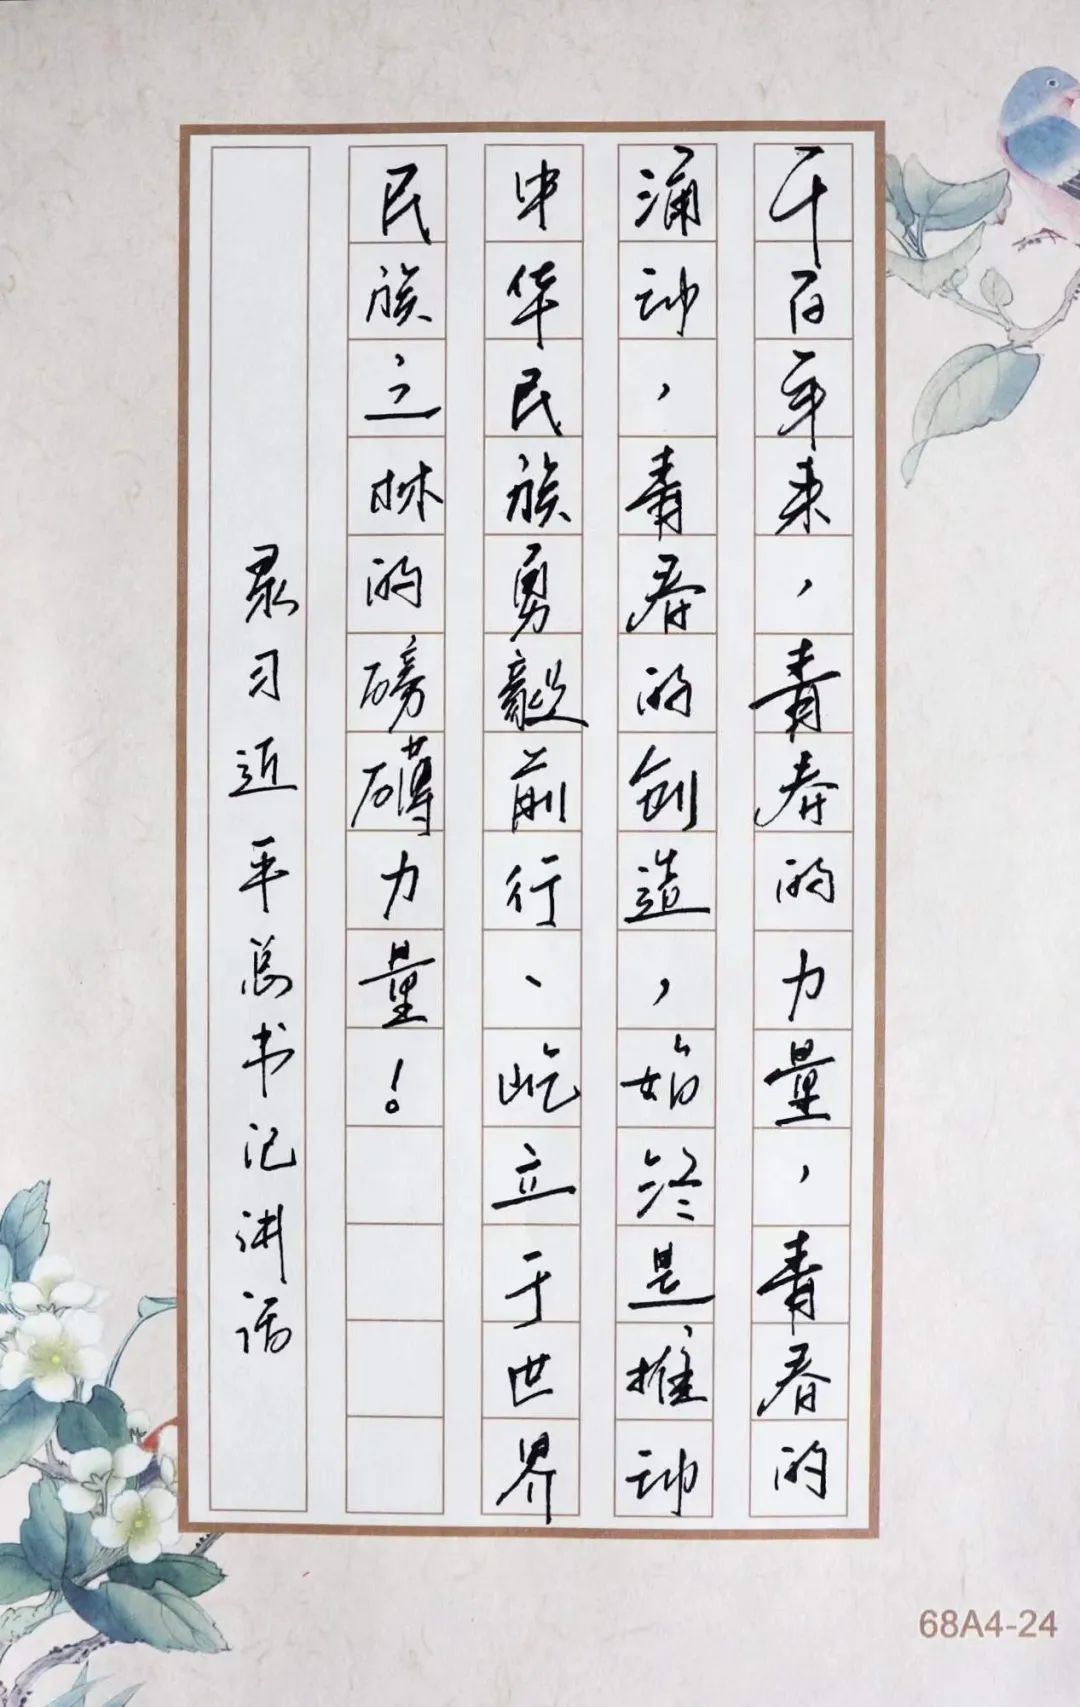 千百年来，青春的力量，青春的
涌动，青春的创造，始终是推动
中华民族勇毅前行、屹立于世界
民族之林的磅礴力量！
录习近平总书记讲话
68A4-24